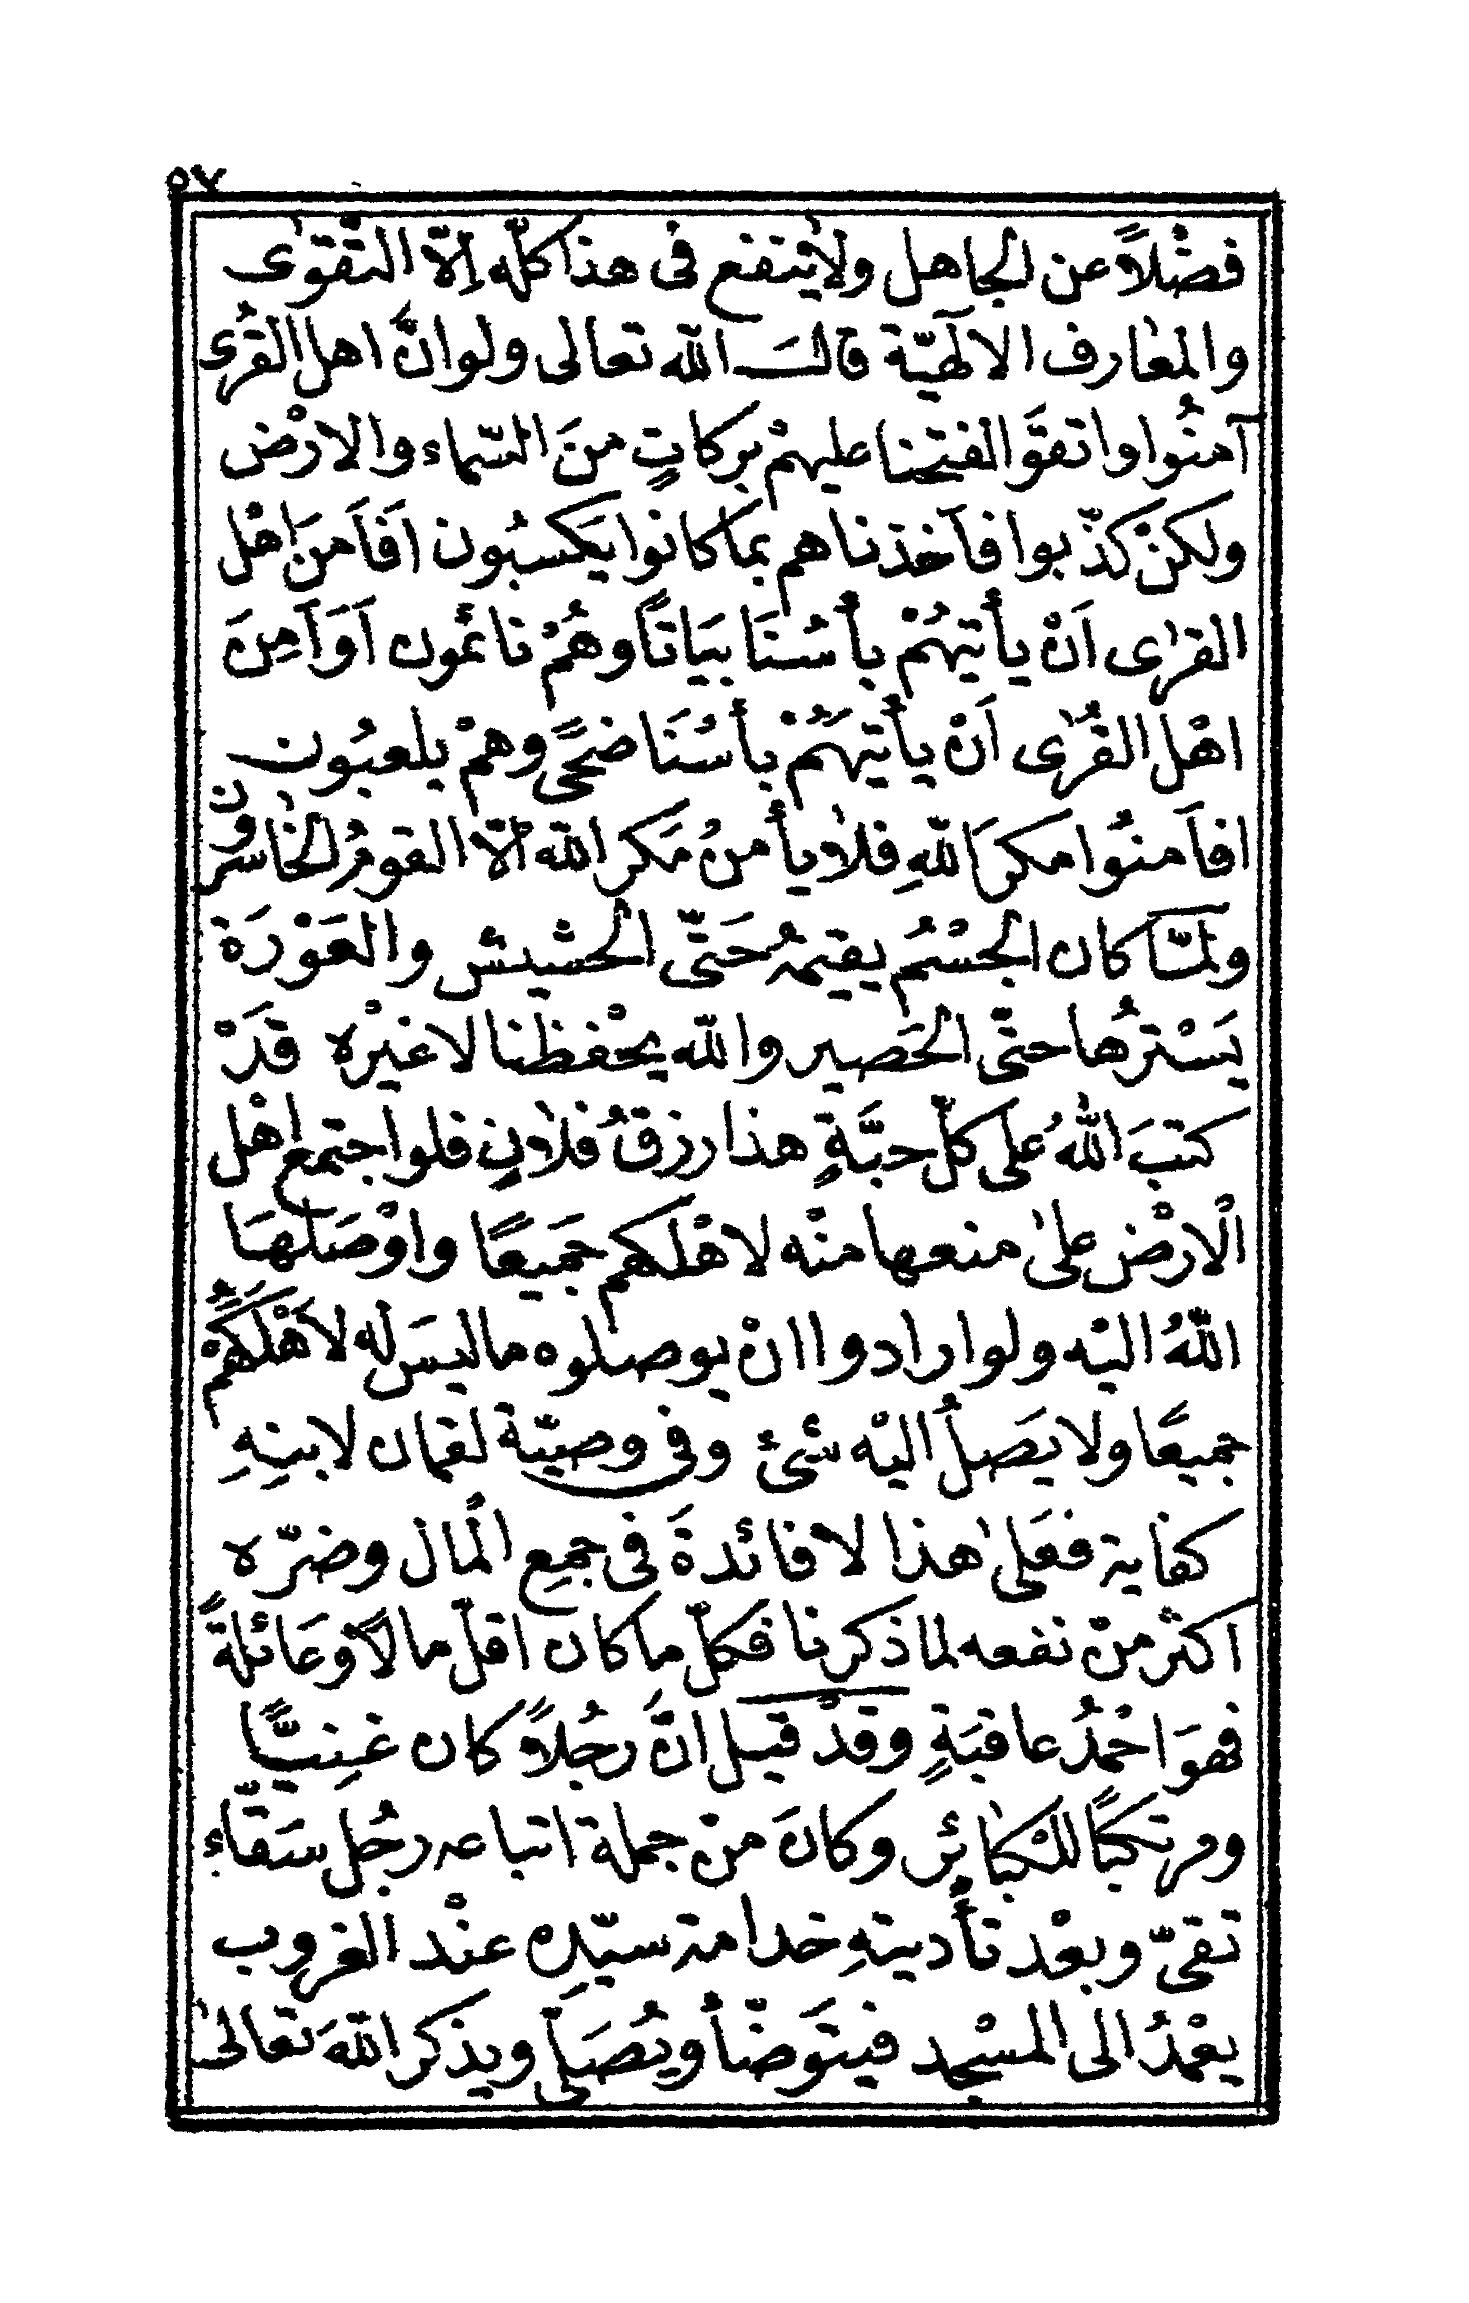 ٥٧
فضْلاً عن الجاهل ولا ينتفع فى هذا كلّه اِلاّ التّقوٰى
والمعارف الالٰهيّة قالَ الله تعالى ولو انَّ اهل القُرٰى
آمنُوا واتقَوا لفتحنا عليهمْ بركاتٍ منَ السّماء والارْض
ولكنْ كذّبوا فاَخذناهم بما كانوا يَكسبُون اَفاَمنَ اهْل
القرٰى اَنْ يأتيهُمْ بأسُنَا بيَاتاً وهُمْ نائمُون اَوَاَمِنَ
اهْل القُرٰى اَنْ يأتيَهُمْ بأسُنَا ضحًى وهمْ يلعبُون
افاَمنُوا مكرَ اللهِ فلا يأمنُ مَكر الله الّا القومُ الخاسرون
ولمّا كان الجسْمُ يقيمهُ حَتّى الحشيش والعَوْرَة
يَسْترُها حتّى الحَصير والله يحْفظنا لا غيْره قَدْ
كتبَ اللهُ على كلّ حبَّةٍ هذا رزقُ فلانٍ فلو اجتمع اهْل
الْارْض علىٰ منعها منْه لاهْلكهم جَميعًا واوْصَلهَا
اللهُ اليْه ولو ارادوا انْ يوصلوه ما ليسَ له لاَهْلَكَهُمْ
جميعًا ولا يَصَلُ اليْه شئ وفى وصيّة لقمان لابنِهِ
كفاية فعَلىٰ هذا لا فائدةَ فى جمع الْمال وضرّه
اكثر منْ نفعه لما ذكرنا فكلّ ما كان اقلّ مالاً وعَائلةً
فهوَ احْمدُ عاقبَةٍ وقدْ قيل انَّ رجُلاً كان غنِيًّا
ومرتكبًا للكبٰائر وكانَ منْ جملة اتباعه رجُل سَقّاء
تقىّ وبعْد تأديتهِ خدامة سيّدِه عنْد الغروب
يعْمدُ الى المسْجد فيتوَضّأ ويُصَلّى ويذكر اللهَ تعالىٰ